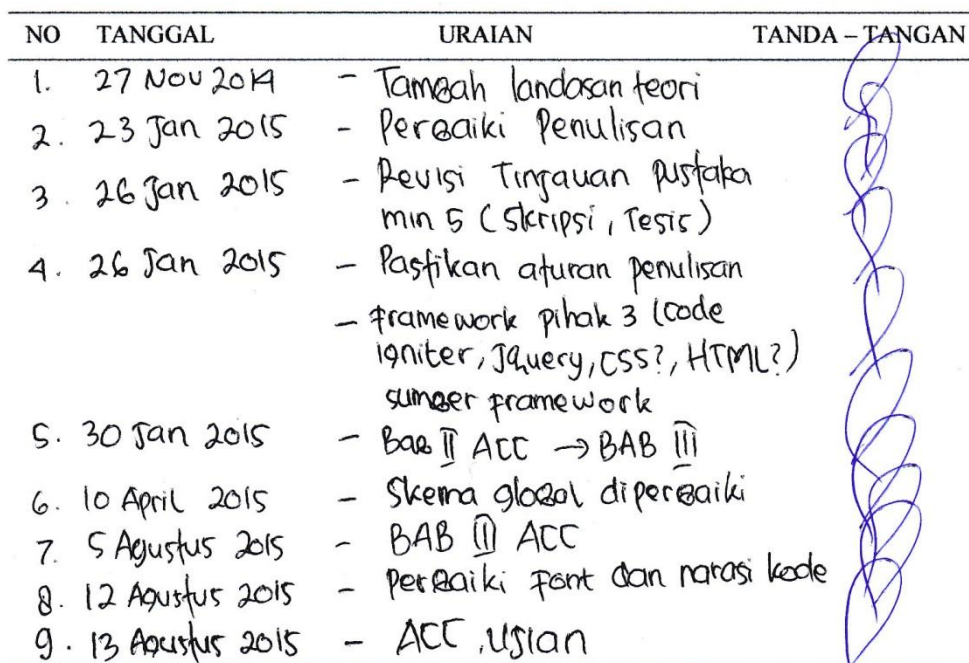 NO TANGGAL URAIAN TANDA – TANGAN
1. 27 Nov 2014 - Tambah landasan teori
2. 23 Jan 2015 - Perbaiki Penulisan
3. 26 Jan 2015 - Revisi Tinjauan Pustaka
min 5 (Skripsi, Tesis)
4. 26 Jan 2015 - Pastikan aturan penulisan
- Framework pihak 3 (Code
Igniter, JQuery, CSS?, HTML?)
sumber framework
5. 30 Jan 2015 - Bab II ACC → BAB III
6. 10 April 2015 - Skema global diperbaiki
7. 5 Agustus 2015 - BAB III ACC
8. 12 Agustus 2015 - Perbaiki Font dan narasi kode
9. 13 Agustus 2015 - ACC, Ujian